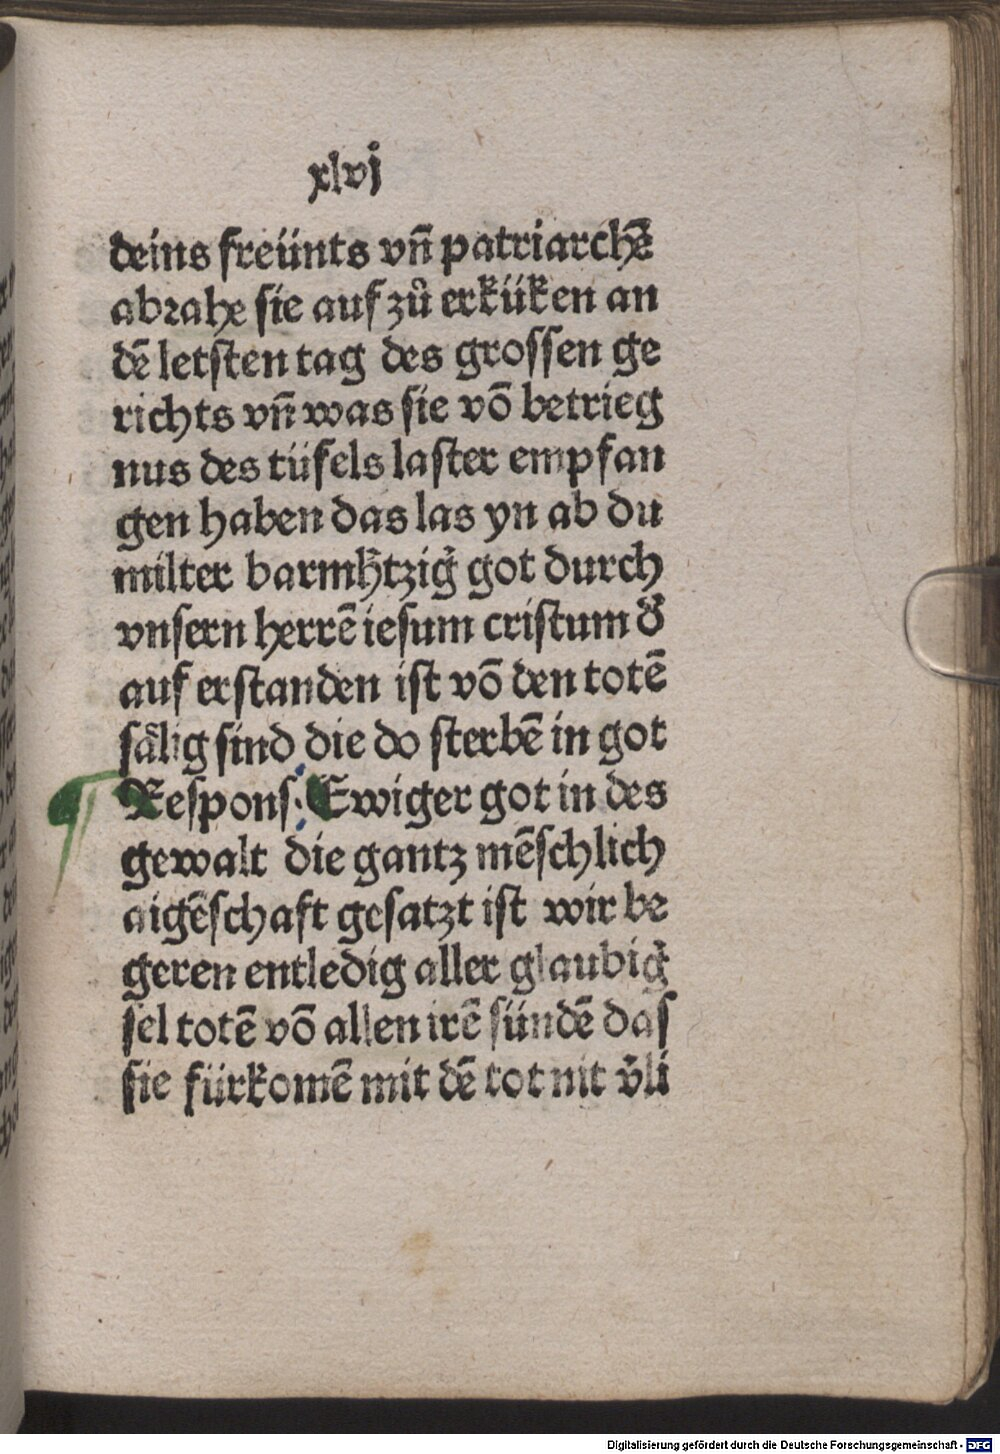 xlvj
deins freünts vñ patriarchē
abꝛahe sie auf zů erküken an
dē letsten tag des grossen ge
richts vñ was sie võ betrieg
nus des tüfels laster empfan
gen haben das las yn ab du
milter barmh̉tzig̉ got durch
vnsern herrē iesum cristum d̉
auf erstanden ist võ den totē
sälig sind die do sterbē in got
Respons. Ewiger got in des
gewalt die gantz mēschlich
aigēschaft gesatzt ist wir be
geren entledig aller glaubig̉
sel totē võ allen irē sündē das
sie fürkomē mit dē tot nit v̉li
Digitalisierung gefördert durch die Deutsche Forschungsgemeinschaft - DFG